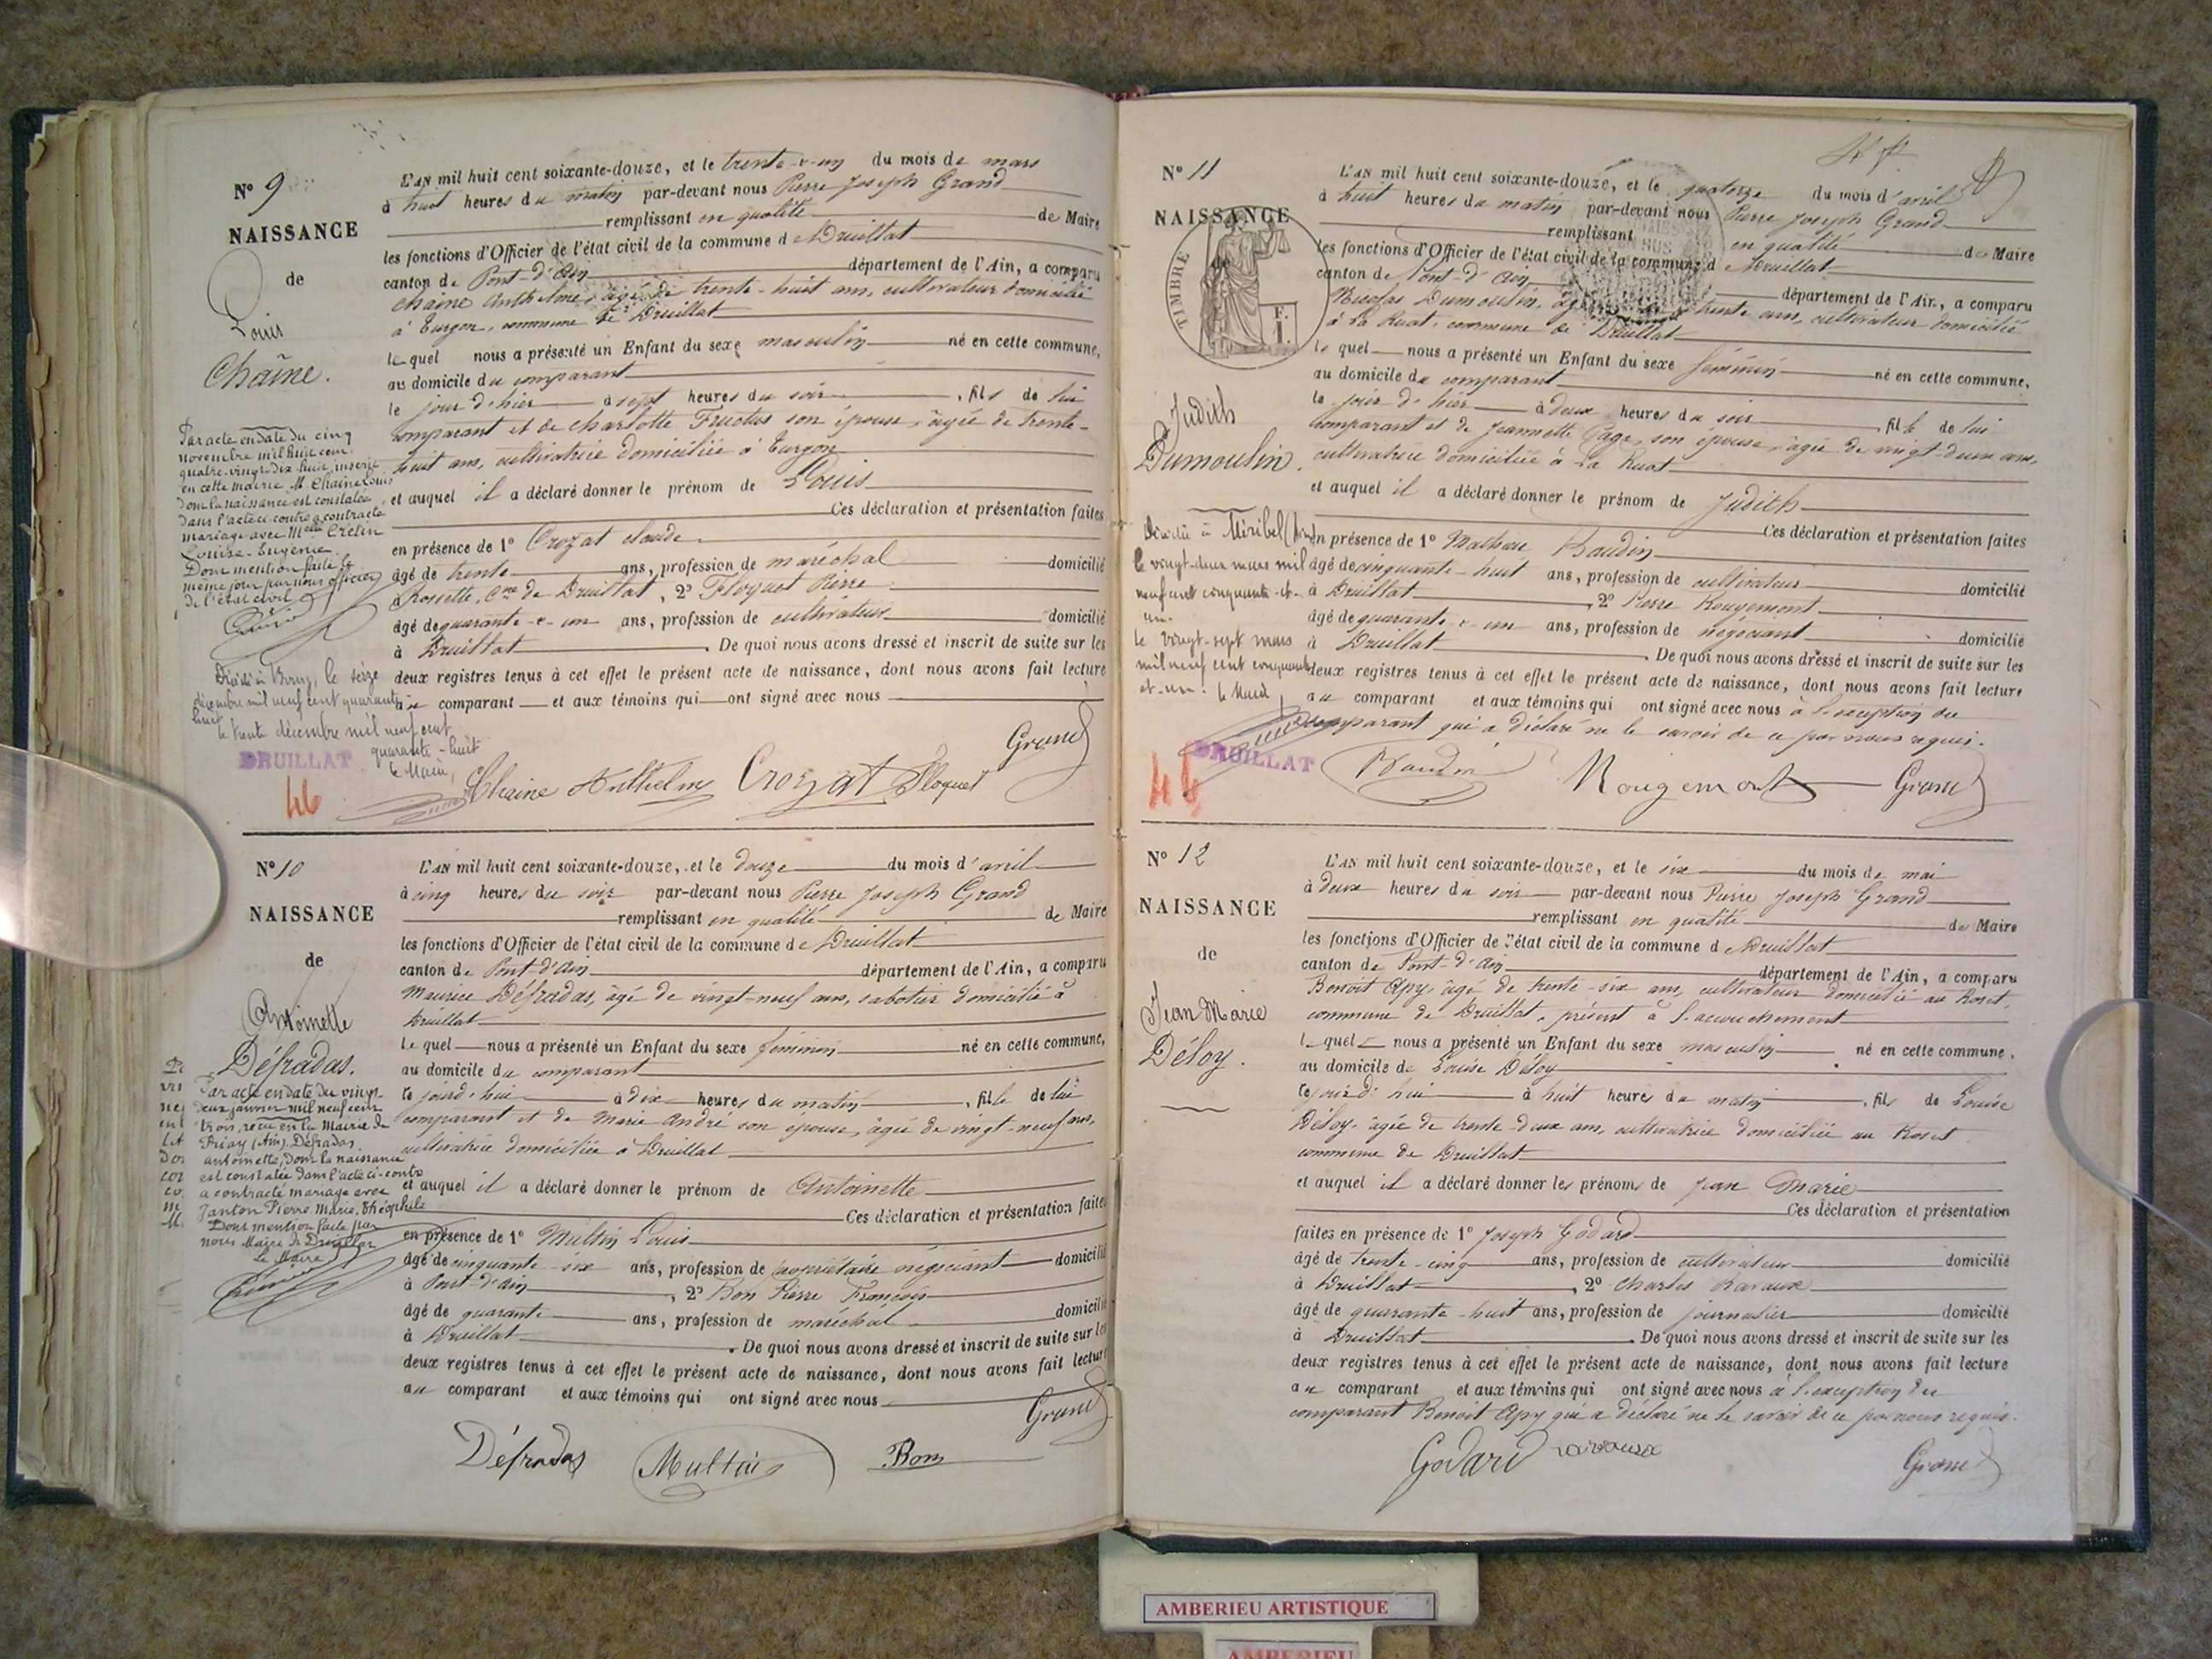 N° 9
NAISSANCE
de
Louis
Chaîne.
Par acte en date du cinq
novembre mil huit cent
quatre-vingt dix huit, inscrit
en cette mairie, M. Chaîne Louis
dont la naissance est constatée
dans l'acte ci-contre a contracté
mariage avec Melle Crétin
Louise-Eugénie.
Dont mention faite le
même jour par nous officier
de l'état civil
Décédé à Bourg, le seize
décembre mil neuf cent quarante
huit
le trente décembre mil neuf cent
quarante-huit
le Maire,
DRUILLAT
46
L'AN mil huit cent soixante-douze, et le trente-e-un du mois de mars
à huit heures du matin par-devant nous Pierre Joseph Grand
remplissant en qualité de Maire
les fonctions d'Officier de l'état civil de la commune de Druillat
canton de Pont-d'Ain département de l'Ain, a comparu
Chaîne Anthelme, âgé de trente-huit ans, cultivateur domicilié
à Turgon, commune de Druillat
lequel nous a présenté un Enfant du sexe masculin né en cette commune,
au domicile du comparant
le jour d'hier à sept heures du soir, fils de lui
comparant et de Charlotte Fructus son épouse, âgée de trente-
huit ans, cultivatrice domiciliée à Turgon
et auquel il a déclaré donner le prénom de Louis
Ces déclaration et présentation faites
en présence de 1° Crozat Claude
âgé de trente ans, profession de maréchal domicilié
à Rossette, Cne de Druillat, 2° Floquet Pierre
âgé de quarante-e-un ans, profession de cultivateur domicilié
à Druillat. De quoi nous avons dressé et inscrit de suite sur les
deux registres tenus à cet effet le présent acte de naissance, dont nous avons fait lecture
au comparant et aux témoins qui ont signé avec nous
Grand
Chaine Anthelme Crozat Floquet
N° 10
NAISSANCE
de
Antoinette
Défradas.
Par acte en date du vingt-
deux janvier mil neuf cent
trois, reçu en la Mairie de
Priay (Ain), Défradas
Antoinette, dont la naissance
est constatée dans l'acte ci-contre
a contracté mariage avec
Janton Pierre, Marie, Théophile
Dont mention faite par
nous Maire de Druillat
Le Maire
L'AN mil huit cent soixante-douze, et le douze du mois d'avril
à cinq heures du soir par-devant nous Pierre Joseph Grand
remplissant en qualité de Maire
les fonctions d'Officier de l'état civil de la commune de Druillat
canton de Pont-d'Ain département de l'Ain, a comparu
Maurice Défradas, âgé de vingt-neuf ans, sabotier domicilié à
Druillat
lequel nous a présenté un Enfant du sexe féminin né en cette commune,
au domicile du comparant
le jourd'hui à dix heures du matin, fille de lui
comparant et de Marie André son épouse, âgée de vingt-neuf ans,
cultivatrice domiciliée à Druillat
et auquel il a déclaré donner le prénom de Antoinette
Ces déclaration et présentation faites
en présence de 1° Multin Louis
âgé de cinquante-six ans, profession de propriétaire négociant domicilié
à Pont-d'Ain, 2° Bon Pierre François
âgé de quarante ans, profession de maréchal domicilié
à Druillat. De quoi nous avons dressé et inscrit de suite sur les
deux registres tenus à cet effet le présent acte de naissance, dont nous avons fait lecture
au comparant et aux témoins qui ont signé avec nous
Grand
Défradas Multin Bon
N° 11
NAISSANCE
de
TIMBRE
F.
I.
Judith
Dumoulin.
Décédée à Miribel (Ain)
le vingt-deux mars mil
neuf cent cinquante-et-
un.
le vingt-sept mars
mil neuf cent cinquante
et-un. le Maire,
DRUILLAT
L'AN mil huit cent soixante-douze, et le quatorze du mois d'avril
à huit heures du matin par-devant nous Pierre Joseph Grand
remplissant en qualité de Maire
les fonctions d'Officier de l'état civil de la commune de Druillat
canton de Pont-d'Ain département de l'Ain, a comparu
Nicolas Dumoulin, âgé de trente ans, cultivateur domicilié
à La Ruat, commune de Druillat
lequel nous a présenté un Enfant du sexe féminin né en cette commune,
au domicile du comparant
le jour d'hier à deux heures du soir, fille de lui
comparant et de Jeannette Page, son épouse, âgée de vingt-deux ans,
cultivatrice domiciliée à La Ruat
et auquel il a déclaré donner le prénom de Judith
Ces déclaration et présentation faites
en présence de 1° Mathieu Baudin
âgé de cinquante-huit ans, profession de cultivateur domicilié
à Druillat, 2° Pierre Rougemont
âgé de quarante-e-un ans, profession de négociant domicilié
à Druillat. De quoi nous avons dressé et inscrit de suite sur les
deux registres tenus à cet effet le présent acte de naissance, dont nous avons fait lecture
au comparant et aux témoins qui ont signé avec nous à l'exception du
comparant qui a déclaré ne le savoir de ce par nous requis.
Baudin Rougemont Grand
N° 12
NAISSANCE
de
Jean Marie
Déloy.
L'AN mil huit cent soixante-douze, et le six du mois de mai
à deux heures du soir par-devant nous Pierre Joseph Grand
remplissant en qualité de Maire
les fonctions d'Officier de l'état civil de la commune de Druillat
canton de Pont-d'Ain département de l'Ain, a comparu
Benoit Apy, âgé de trente-six ans, cultivateur domicilié au Roset,
commune de Druillat, présent à l'accouchement
lequel nous a présenté un Enfant du sexe masculin né en cette commune,
au domicile de Louise Déloy
le jourd'hui à huit heures du matin, fils de Louise
Déloy, âgée de trente-deux ans, cultivatrice domiciliée au Roset
commune de Druillat
et auquel il a déclaré donner les prénoms de Jean Marie
Ces déclaration et présentation
faites en présence de 1° Joseph Godard
âgé de trente-cinq ans, profession de cultivateur domicilié
à Druillat, 2° Charles Ravaux
âgé de quarante-huit ans, profession de journalier domicilié
à Druillat. De quoi nous avons dressé et inscrit de suite sur les
deux registres tenus à cet effet le présent acte de naissance, dont nous avons fait lecture
au comparant et aux témoins qui ont signé avec nous à l'exception du
comparant Benoit Apy qui a déclaré ne le savoir de ce par nous requis.
Godard Grand
AMBERIEU ARTISTIQUE
AMBERIEU